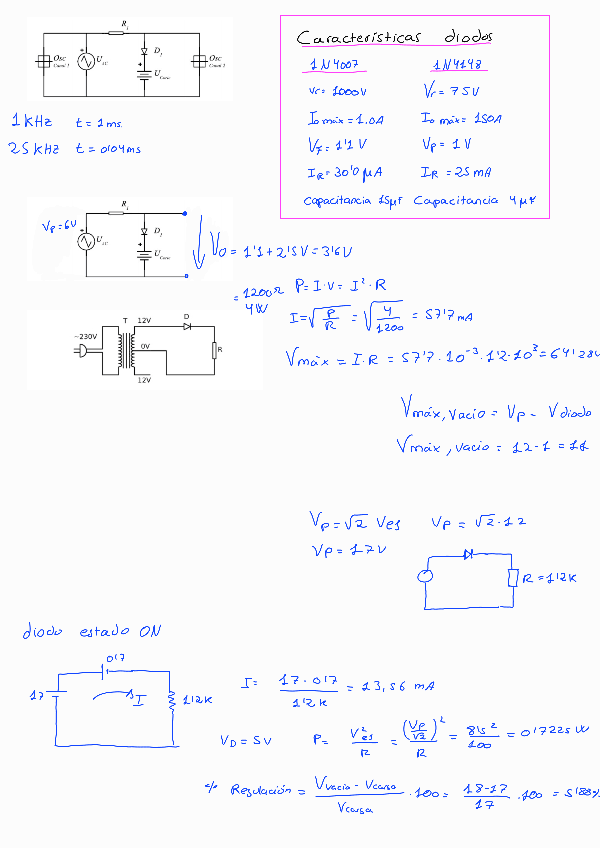 R₁
Osc
Canal 1
U_AC
D₁
U_Corrc
Osc
Canal 2
Características diodos
1N4007 1N4148
Vr = 1000V Vr = 75V
Io máx = 1.0A Io máx = 150A
V_F = 1'1 V V_F = 1 V
I_R = 30'0 µA I_R = 25 mA
Capacitancia 15µF Capacitancia 4 µF
1 kHz t = 1ms
25 kHz t = 0'04ms
Vp = 6V
R₁
U_AC
D₁
V₀ = 1'1 + 2'5V = 3'6V
= 1200Ω
4W
P = I·V = I²·R
I = √(P/R) = √(4/1200) = 57'7 mA
Vmáx = I·R = 57'7·10⁻³·1'2·10³ = 69'28V
~230V
T
12V
D
0V
R
12V
Vmáx, vacío = Vp - Vdiodo
Vmáx, vacío = 12-1 = 11
Vp = √2 Ves Vp = √2·12
Vp = 17V
R = 1'2K
diodo estado ON
0'7
17
I
1'2K
I = (17·0'7)/(1'2K) = 13,56 mA
V_D = 5V P = V²es/R = (Vp/√2)²/R = 8'5²/100 = 0'7225 W
% Regulación = (Vvacio - Vcarga)/Vcarga · 100 = (18-17)/17 · 100 = 5'88%